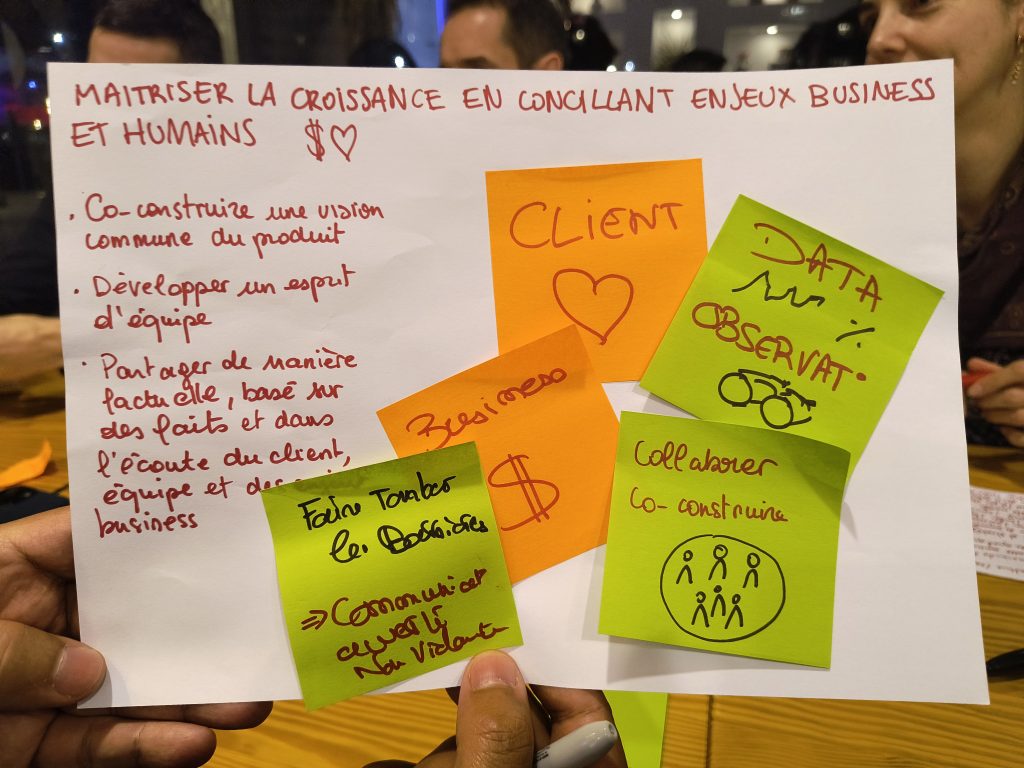 MAITRISER LA CROISSANCE EN CONCILLANT ENJEUX BUSINESS
ET HUMAINS $♡
. Co-construire une vision
commune du produit
. Développer un esprit
d'équipe
. Partager de manière
factuelle, basé sur
des faits et dans
l'écoute du client,
équipe et des
business
CLIENT
DATA
%
OBSERVAT°
Business
$
Faire Tomber
les Barrières
⇒ Communicat
ouverte
Non Violente
Collaborer
Co-construire